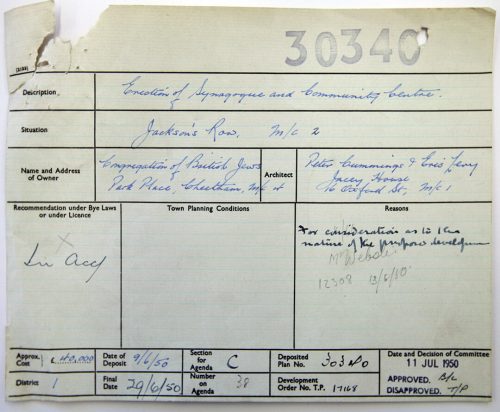 30340
Description
Erection of Synagogue and Community Centre.
Situation
Jackson's Row, M/c 2
Name and Address
of Owner
Congregation of British Jews
Park Place, Cheetham, M/c 4
Architect
Peter Cummings & Eric Levy
Jacey House
16 Oxford St, M/c 1
Recommendation under Bye Laws
or under Licence
In Acc
Town Planning Conditions
Reasons
For consideration as to the
nature of the
Mr Webster
12308 13/6/50
Approx.
Cost
£ 40,000
Date of
Deposit
9/6/50
Section
for
Agenda
C
Deposited
Plan No.
30340
Date and Decision of Committee
11 JUL 1950
APPROVED. B/L
DISAPPROVED. T/P
District
1
Final
Date
29/6/50
Number
on
Agenda
38
Development
Order No. T.P.
17168